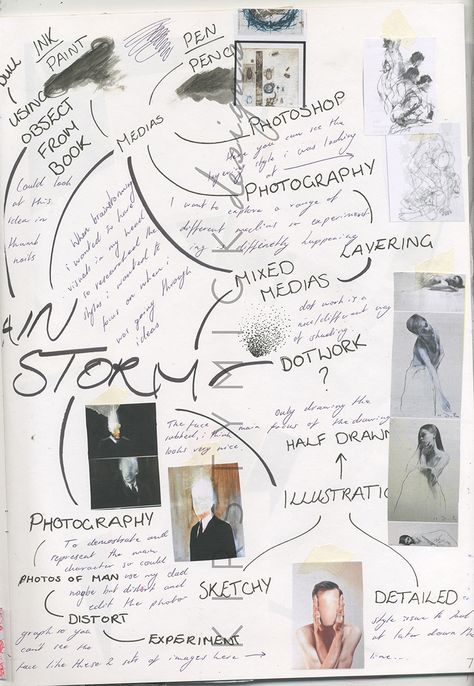 INK
PAINT
PEN
PENCIL
USING
OBJECT
FROM
BOOK
MEDIAS
PHOTOSHOP
here you can see the
style i was looking
at
PHOTOGRAPHY
Could look
at this
idea in
thumb
nails
When brainstorming
i wanted to have
visuals in my head
so researched the
styles i wanted to
focus on when i
was going through
ideas
I want to explore a range of
different
so experiment
differently happening
LAYERING
MIXED
MEDIAS
dot work is a
nice/different way
of shading
AIN
STORM
DOTWORK
?
The face
rubbed, i think
looks very nice.
Only drawing the
main focus of the drawing
HALF DRAWN
ILLUSTRATIO
PHOTOGRAPHY
To demonstrate and
represent the main
character so could
PHOTOS OF MAN use my dad
maybe but distort and
edit the photo
DISTORT
graph so you
can't see the
face like these 2 sets of images here
EXPERIMENT
SKETCHY
DETAILED
style issue to look
at later down the
line...
KATYMICK design
7